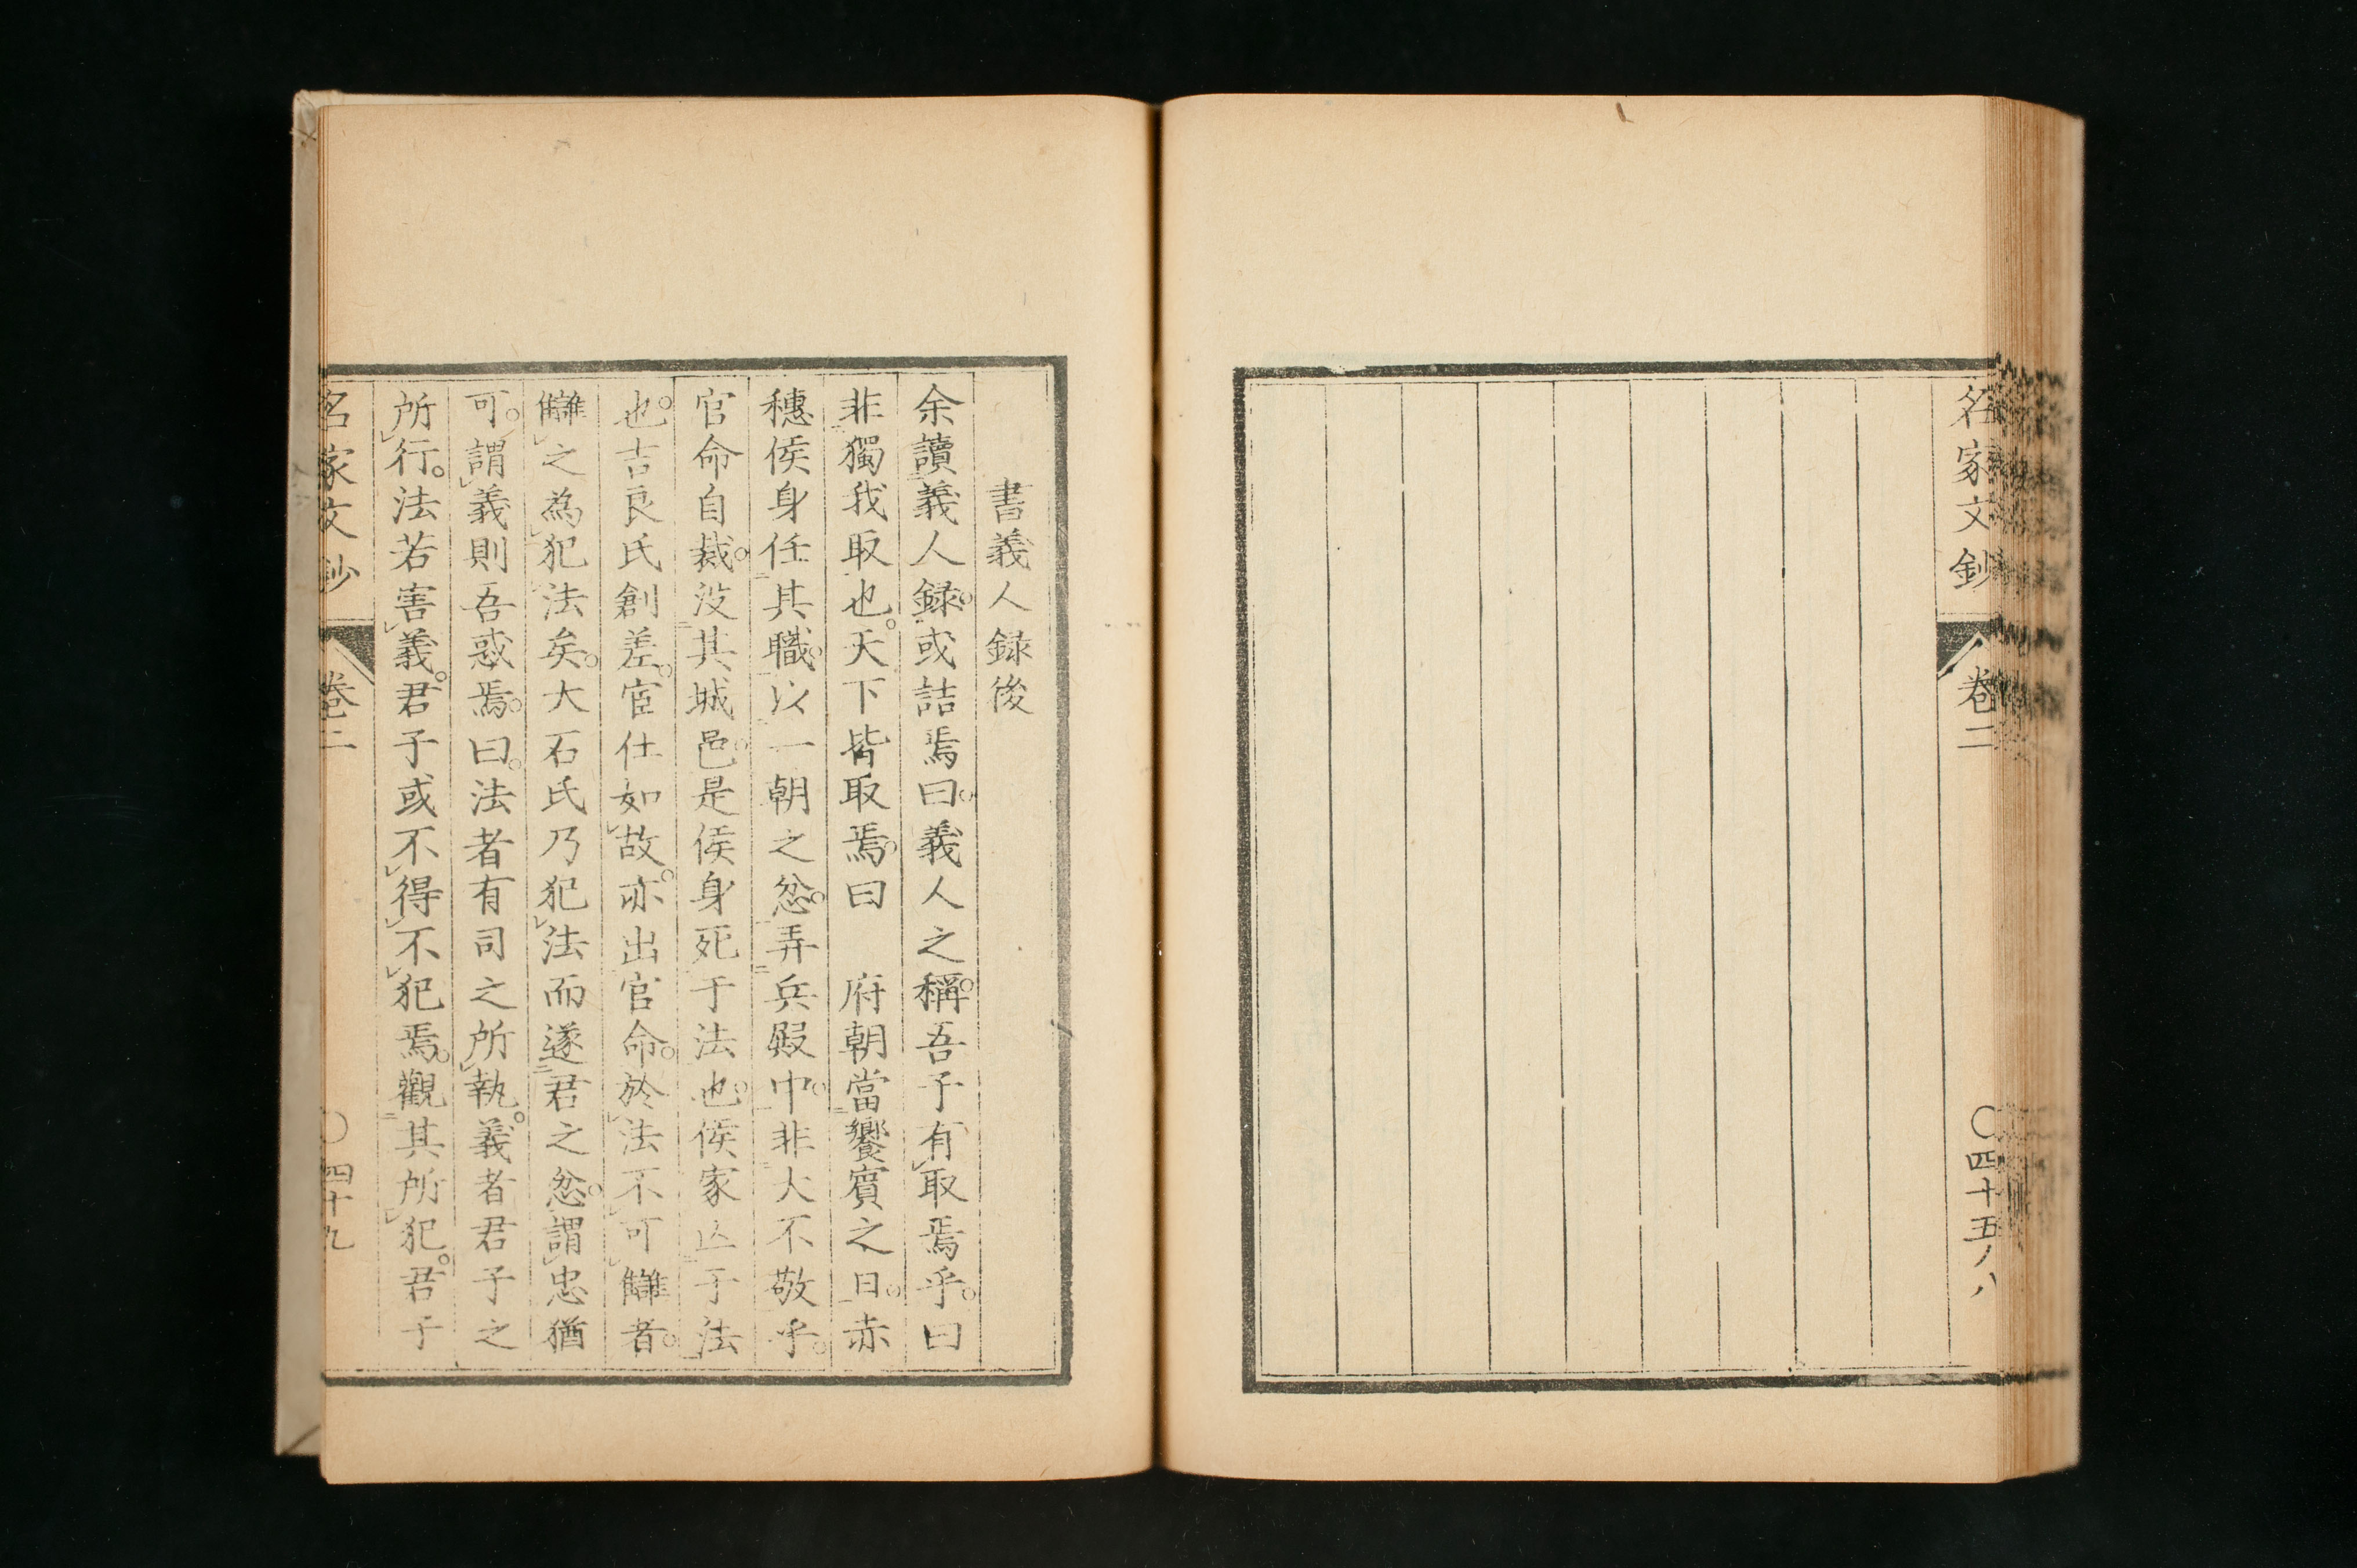 名家文鈔
卷二
〇四十五ノ八
書義人録後
余讀義人録。或詰焉曰。義人之稱。吾子有取焉乎。曰
非獨我取也。天下皆取焉。曰　府朝當饗賓之日。赤
穗侯身任其職。以一朝之忿。弄兵殿中。非大不敬乎。
官命自裁。沒其城邑。是侯身死于法也。侯家亾于法
也。吉良氏創差。宦仕如故。亦出官命。於法不可讎者。
讎之為犯法矣。大石氏乃犯法而遂君之忿。謂忠猶
可。謂義則吾惑焉。曰。法者有司之所執。義者君子之
所行。法若害義。君子或不得不犯焉。觀其所犯。君子
名家文鈔
卷二
〇四十九